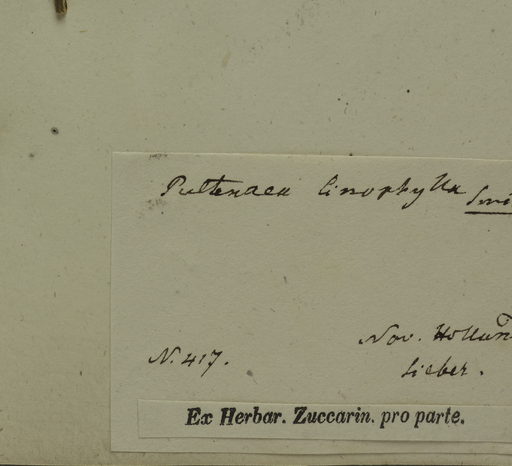 Pultenaea linophylla Smi
Nov. Hollan
N. 417.
Sieber.
Ex Herbar. Zuccarin. pro parte.